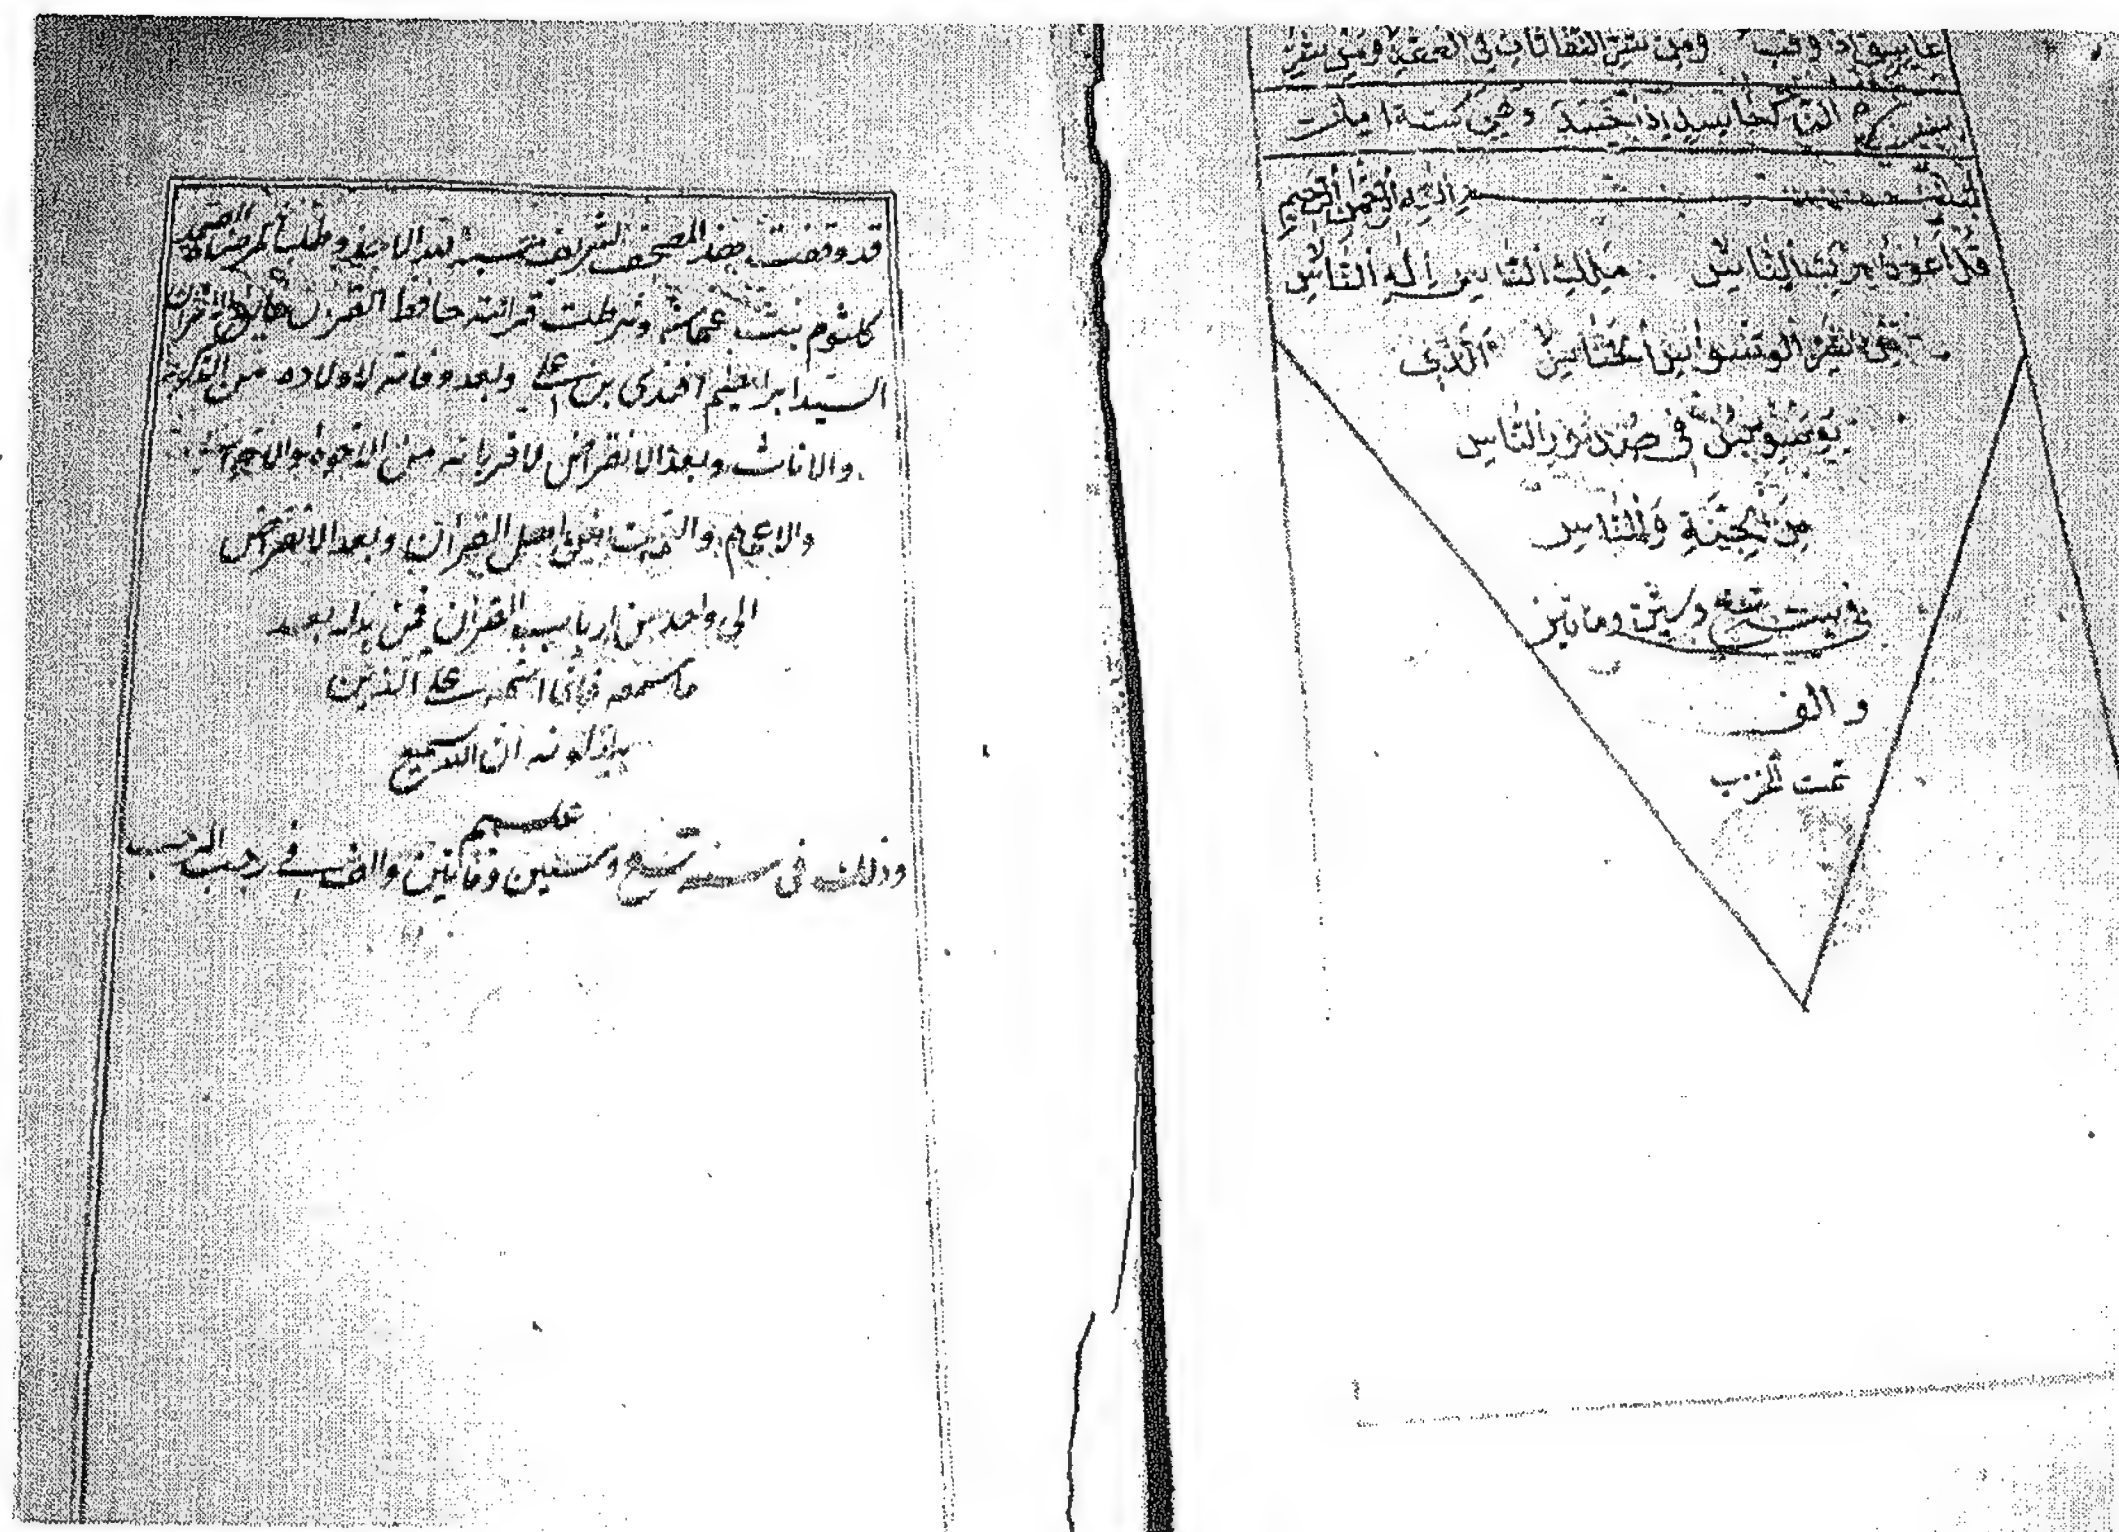 غاسق اذا وقب ومن شر النفاثات في العقد ومن شر
حاسد اذا حسد
بسم الله الرحمن الرحيم
قل أعوذ برب الناس ملك الناس إله الناس
من شر الوسواس الخناس الذي
يوسوس في صدور الناس
من الجنة والناس
في سنة تسع وستين ومأتين
والف
تمت
قد وقفت هذ المصحف الشريف حسبة لله الاحد وطلبا لمرضاة الصمد
كلثوم بنت وشرطت قرائته حافظ القران
السيد ابراهيم افندى بن على وبعد وفاته لاولاده من الذكور
والاناث وبعد الانقراض لاقربائه من الاخوة والاخوات
والاعمام اهل القران وبعد الانقراض
الى واحد من ارباب القران فمن بدله بعد
ما سمعه فانما اثمه على الذين
يبدلونه ان الله سميع
عليم
وذلك فى سنه تسع وستين ومأتين والف فى رجب المرجب